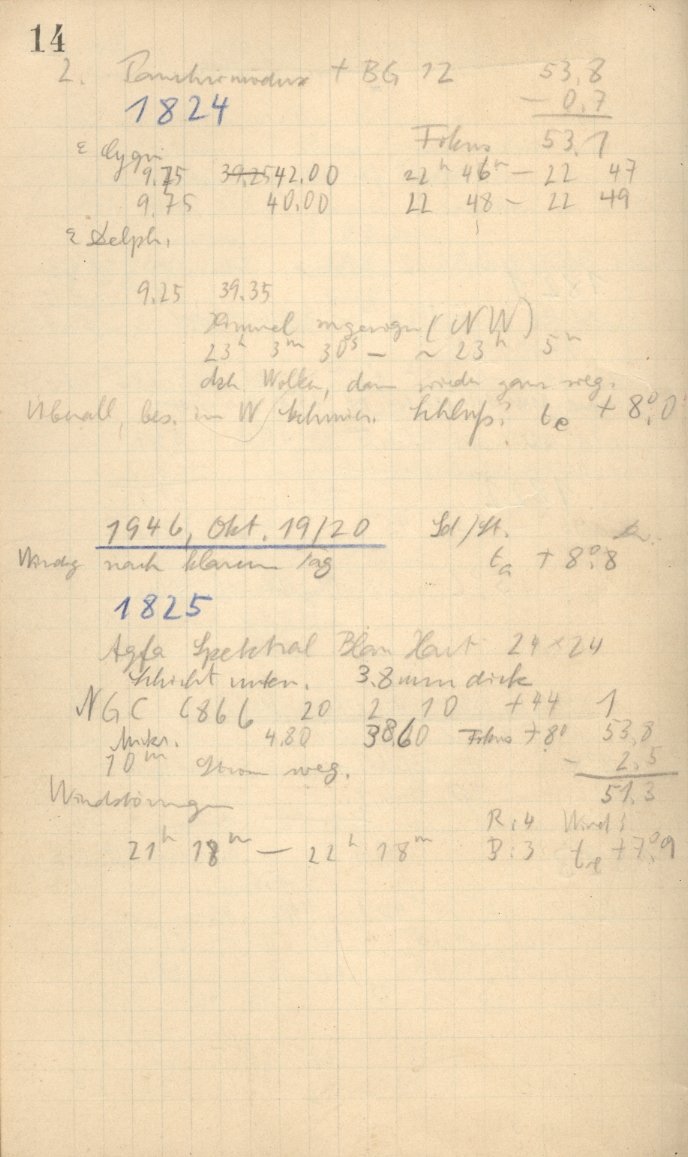 14
2. Panchromodux + BG 12 53,8
1824 - 0,7
Fokus 53,1
ε Cygni
9.75 39.25 42.00 22h 46m — 22 47
9.75 40.00 22 48 — 22 49
ε Delph.
9.25 39.35
Himmel (NW)
23h 3m 30s — ~ 23h 5m
Wolken, dann wieder ganz weg.
Überall, bes. im W Schluß: te + 8°,0
1946, Okt. 19/20 Sd/St.
Windig nach klarem Tag ta + 8°,8
1825
Agfa Spektral Blau Hart 24 × 24
Schicht unten. 3.8 mm dick
NGC 6866 20 2 10 + 44 1
4.80 38.60 Fokus + 8° 53,8
10m Strom weg. - 2,5
51,3
Windstörungen
R: 4 Wind!
21h 18m — 22h 18m B: 3 te + 7°,9